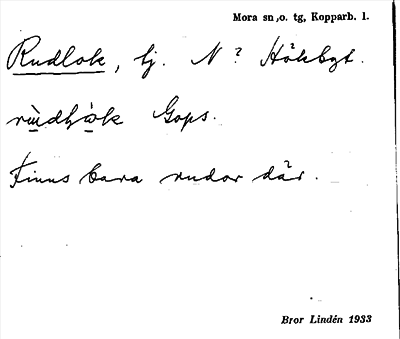 Mora sn, o. tg, Kopparb. l.
Rudlok, tj. N? Hökbgt.
Gops.
Finns bara rudor där.
Bror Lindén 1933